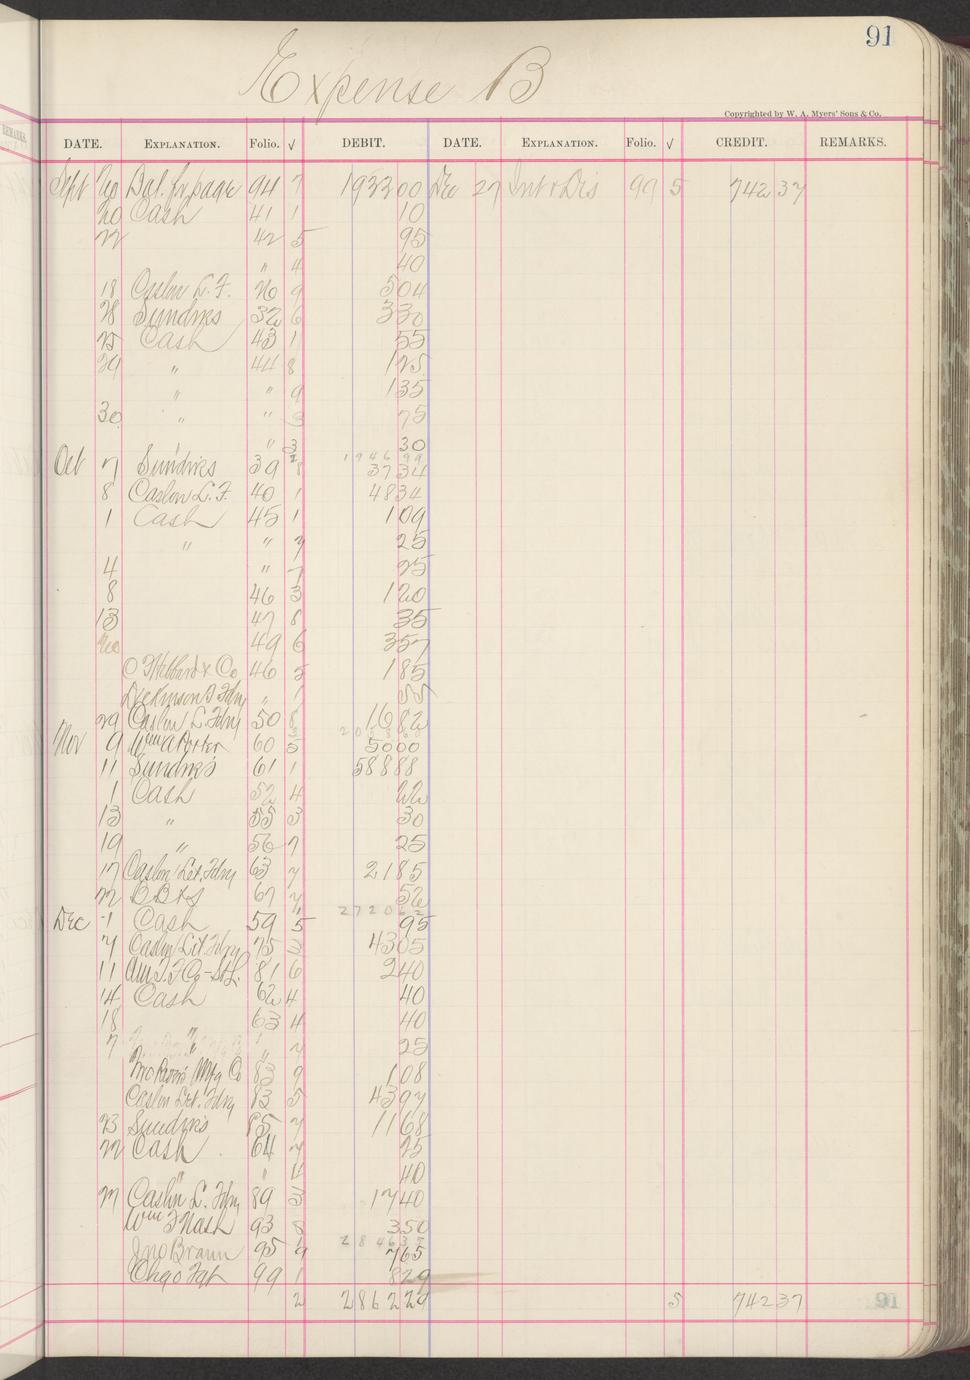 91
Expense B
Copyrighted by W. A. Myers' Sons & Co.
DATE. EXPLANATION. Folio. √ DEBIT. DATE. EXPLANATION. Folio. √ CREDIT. REMARKS.
Sept 20 Bal. fr page 94 7 1933 00 Dec 27 Int & Dis 99 5 742 37
20 Cash 41 1 10
22 42 5 95
" 4 40
18 Caslon L. F. 26 9 504
28 Sundries 32 6 330
25 Cash 43 1 55
29 " 44 8 125
" " 9 135
30 " " 3 75
" 3 30
1946 99
Oct 7 Sundries 39 8 3734
8 Caslon L. F. 40 1 4834
1 Cash 45 1 109
" " 7 25
4 " 7 25
8 46 3 120
13 47 8 35
20 49 6 357
O F Hebbard & Co 46 5 185
Dickinson T Fdry " 1 55
29 Caslon L. Fdry 50 8 1682
Nov 9 Wm A Porter 60 5 5000
11 Sundries 61 1 58888
1 Cash 52 4 22
13 " 55 3 30
19 " 56 7 25
17 Caslon Let. Fdry 63 7 2185
22 B B & S 67 7 52
2720
Dec 1 Cash 59 5 95
7 Caslon Let Fdry 75 3 4305
11 Am. T. F Co - St L. 81 6 240
14 Cash 62 4 40
18 63 4 40
7 " " 7 25
Mfg Co 83 9 108
Caslon Let. Fdry 83 5 4397
23 Sundries 85 7 1168
22 Cash 64 7 25
" " 4 40
27 Caslon L. Fdry 89 3 1740
Wm F Nash 93 8 350
2846 35
Jno Braun 95 4 765
Chgo Fgt 99 1 829
2 2862 29 5 742 37
91